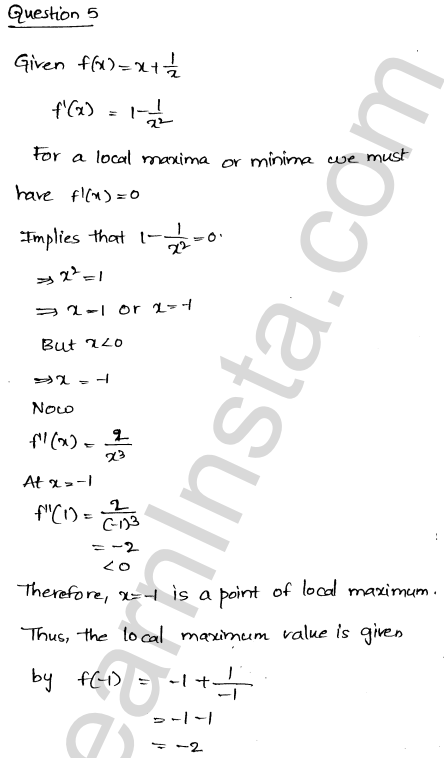 Question 5
Given f(x) = x + 1/x
f'(x) = 1 - 1/x²
For a local maxima or minima we must
have f'(x) = 0
Implies that 1 - 1/x² = 0.
⇒ x² = 1
⇒ x = 1 or x = -1
But x < 0
⇒ x = -1
Now
f''(x) = 2/x³
At x = -1
f''(1) = 2/(-1)³
= -2
< 0
Therefore, x = -1 is a point of local maximum.
Thus, the local maximum value is given
by f(-1) = -1 + 1/-1
= -1 - 1
= -2
LearnInsta.com